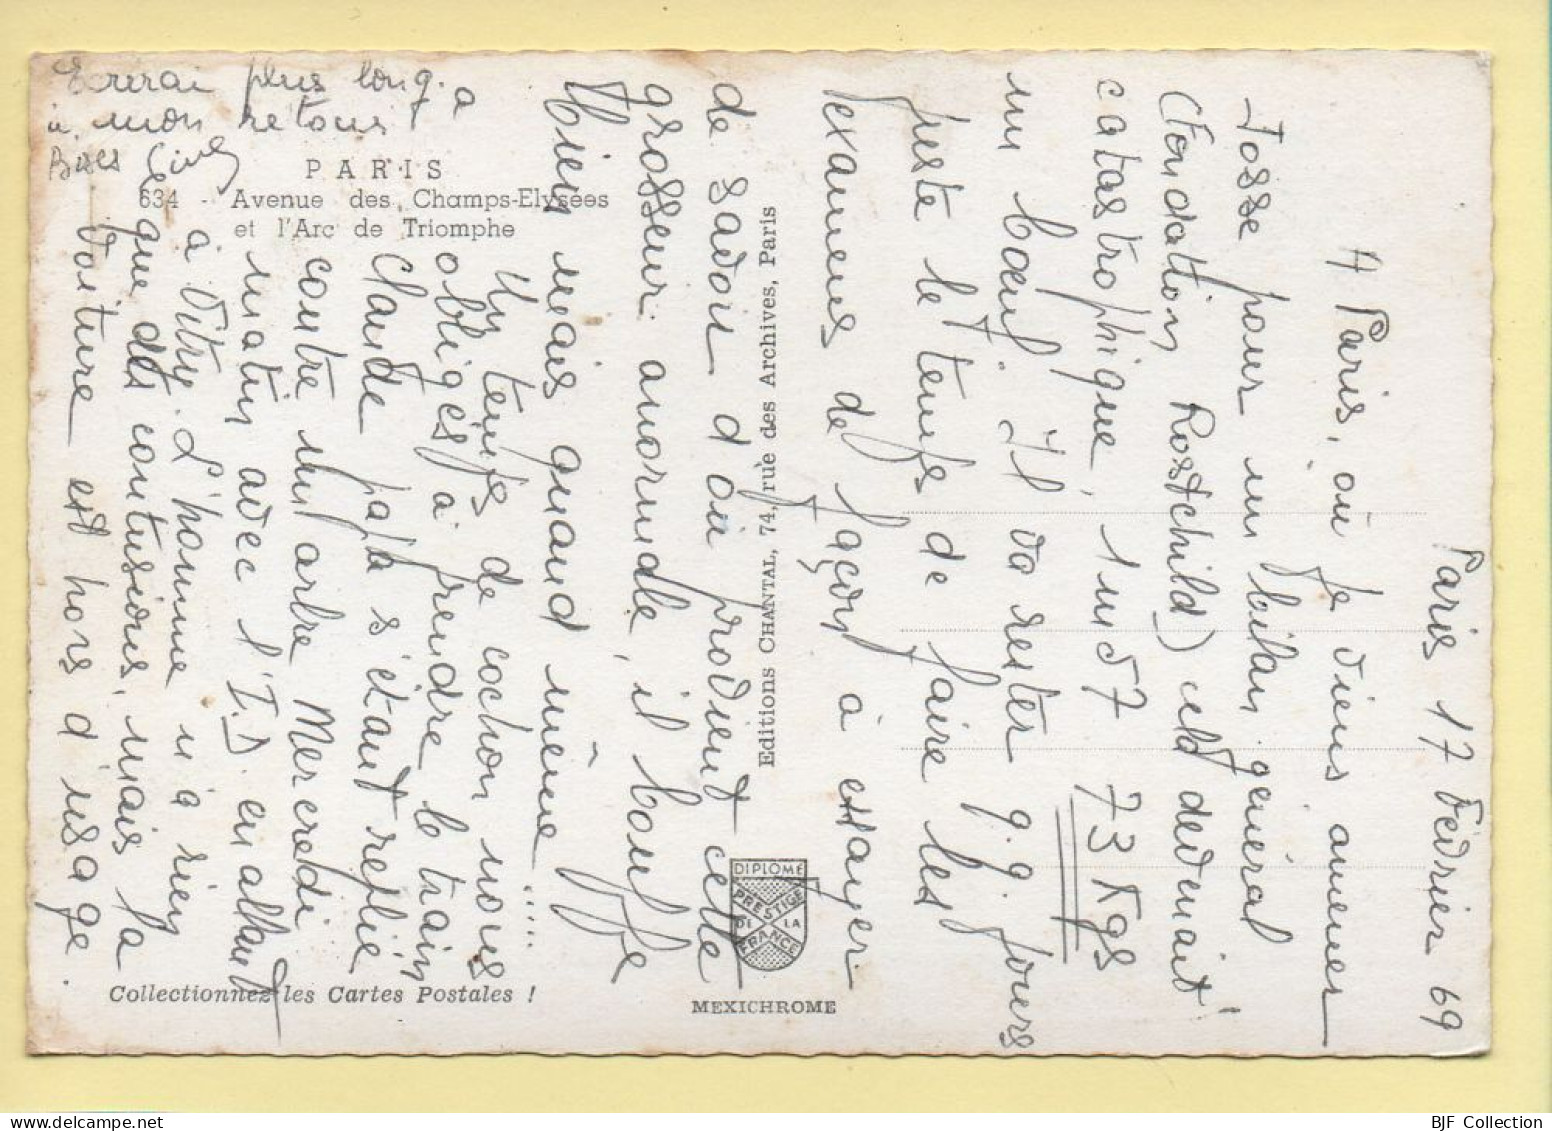 Paris 17 Février 69
A Paris, où je viens amener
Josse pour un bilan général
(Fondation Rostchild) cela devenait
catastrophique, 1m57 73 Kgs
un bœuf. Il va rester q.q. jours
juste le temps de faire les
examens de façon à essayer
de savoir d'où provient cette
grosseur anormale, il bouffe
bien mais quand même .....
Un temps de cochon nous a
obligés à prendre le train
Claude papa s'étant replié
contre un arbre Mercredi
matin avec l'I.D en allant
à Vitry. L'homme n'a rien
que des contusions, mais la
voiture est hors d'usage.
Ecrirai plus long
à mon retour
Bises
PARIS
634 - Avenue des Champs-Elysées
et l'Arc de Triomphe
Editions CHANTAL, 74, rue des Archives, Paris
DIPLOME
PRESTIGE
DE LA
FRANCE
MEXICHROME
Collectionnez les Cartes Postales !
BJF Collection